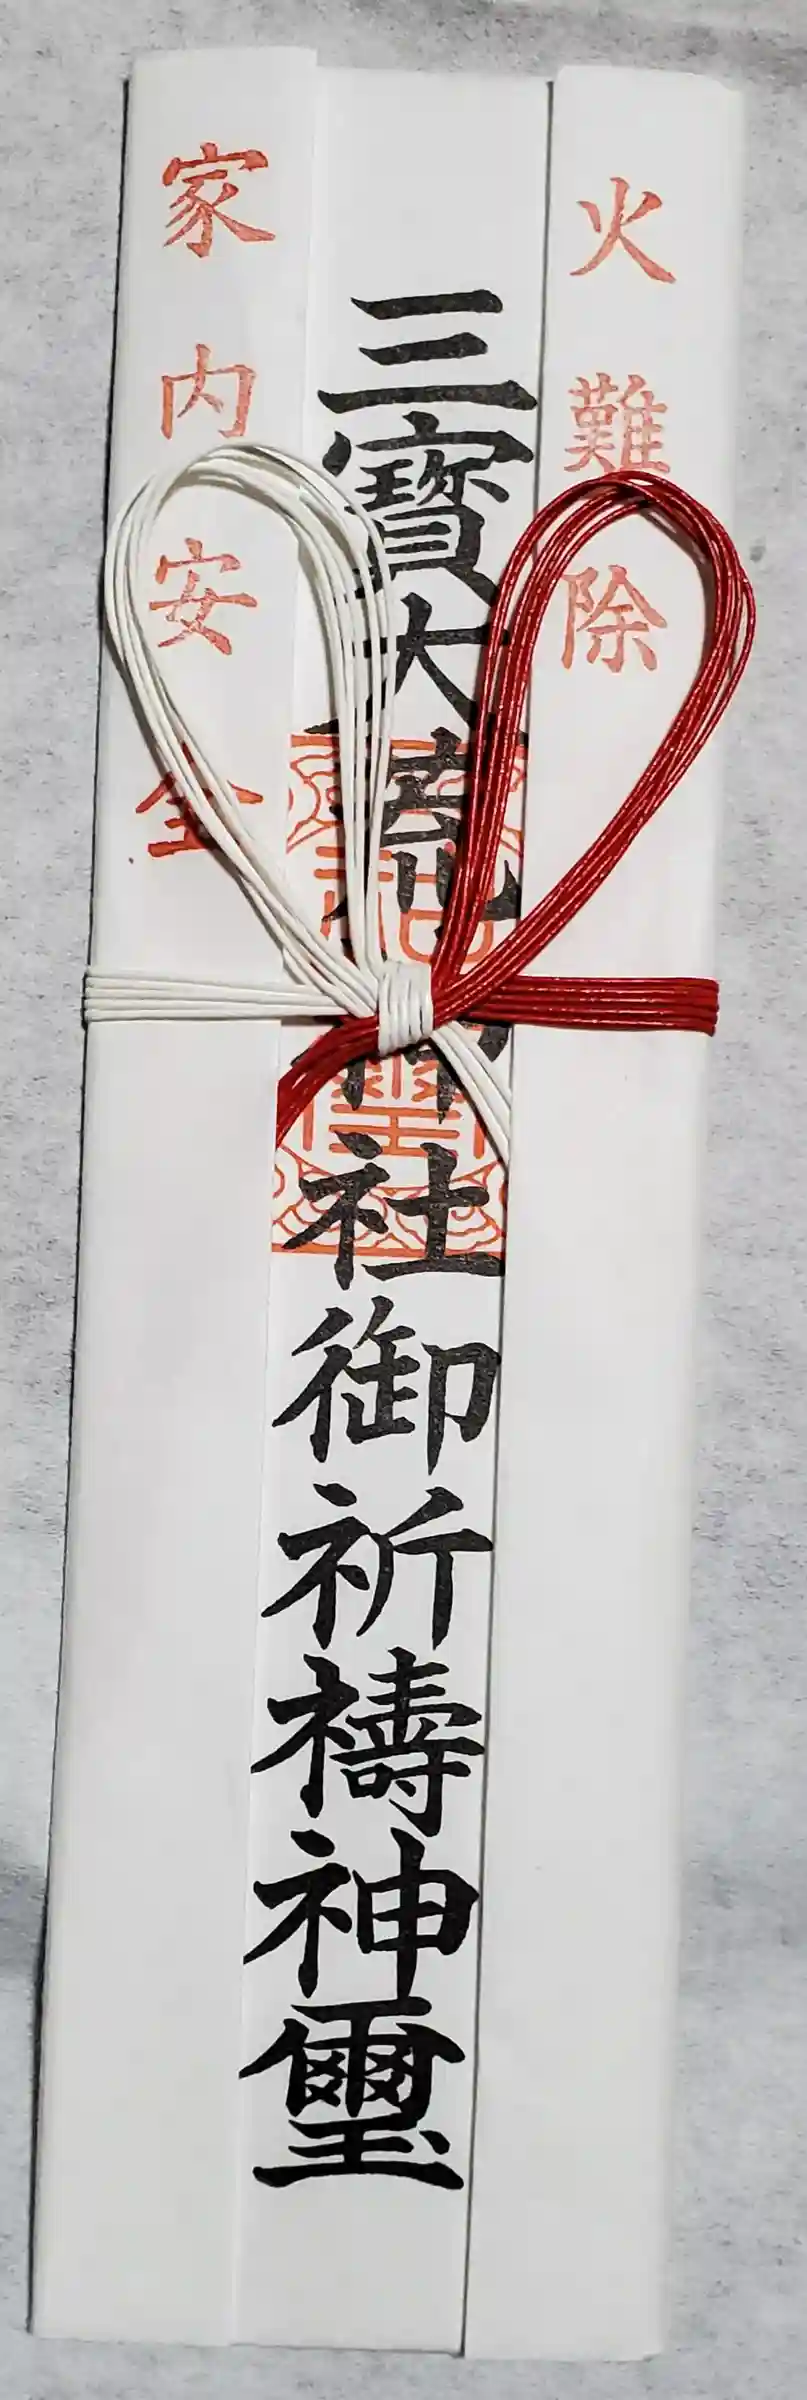 火難除
三寶大荒神社御祈禱神璽
家内安全